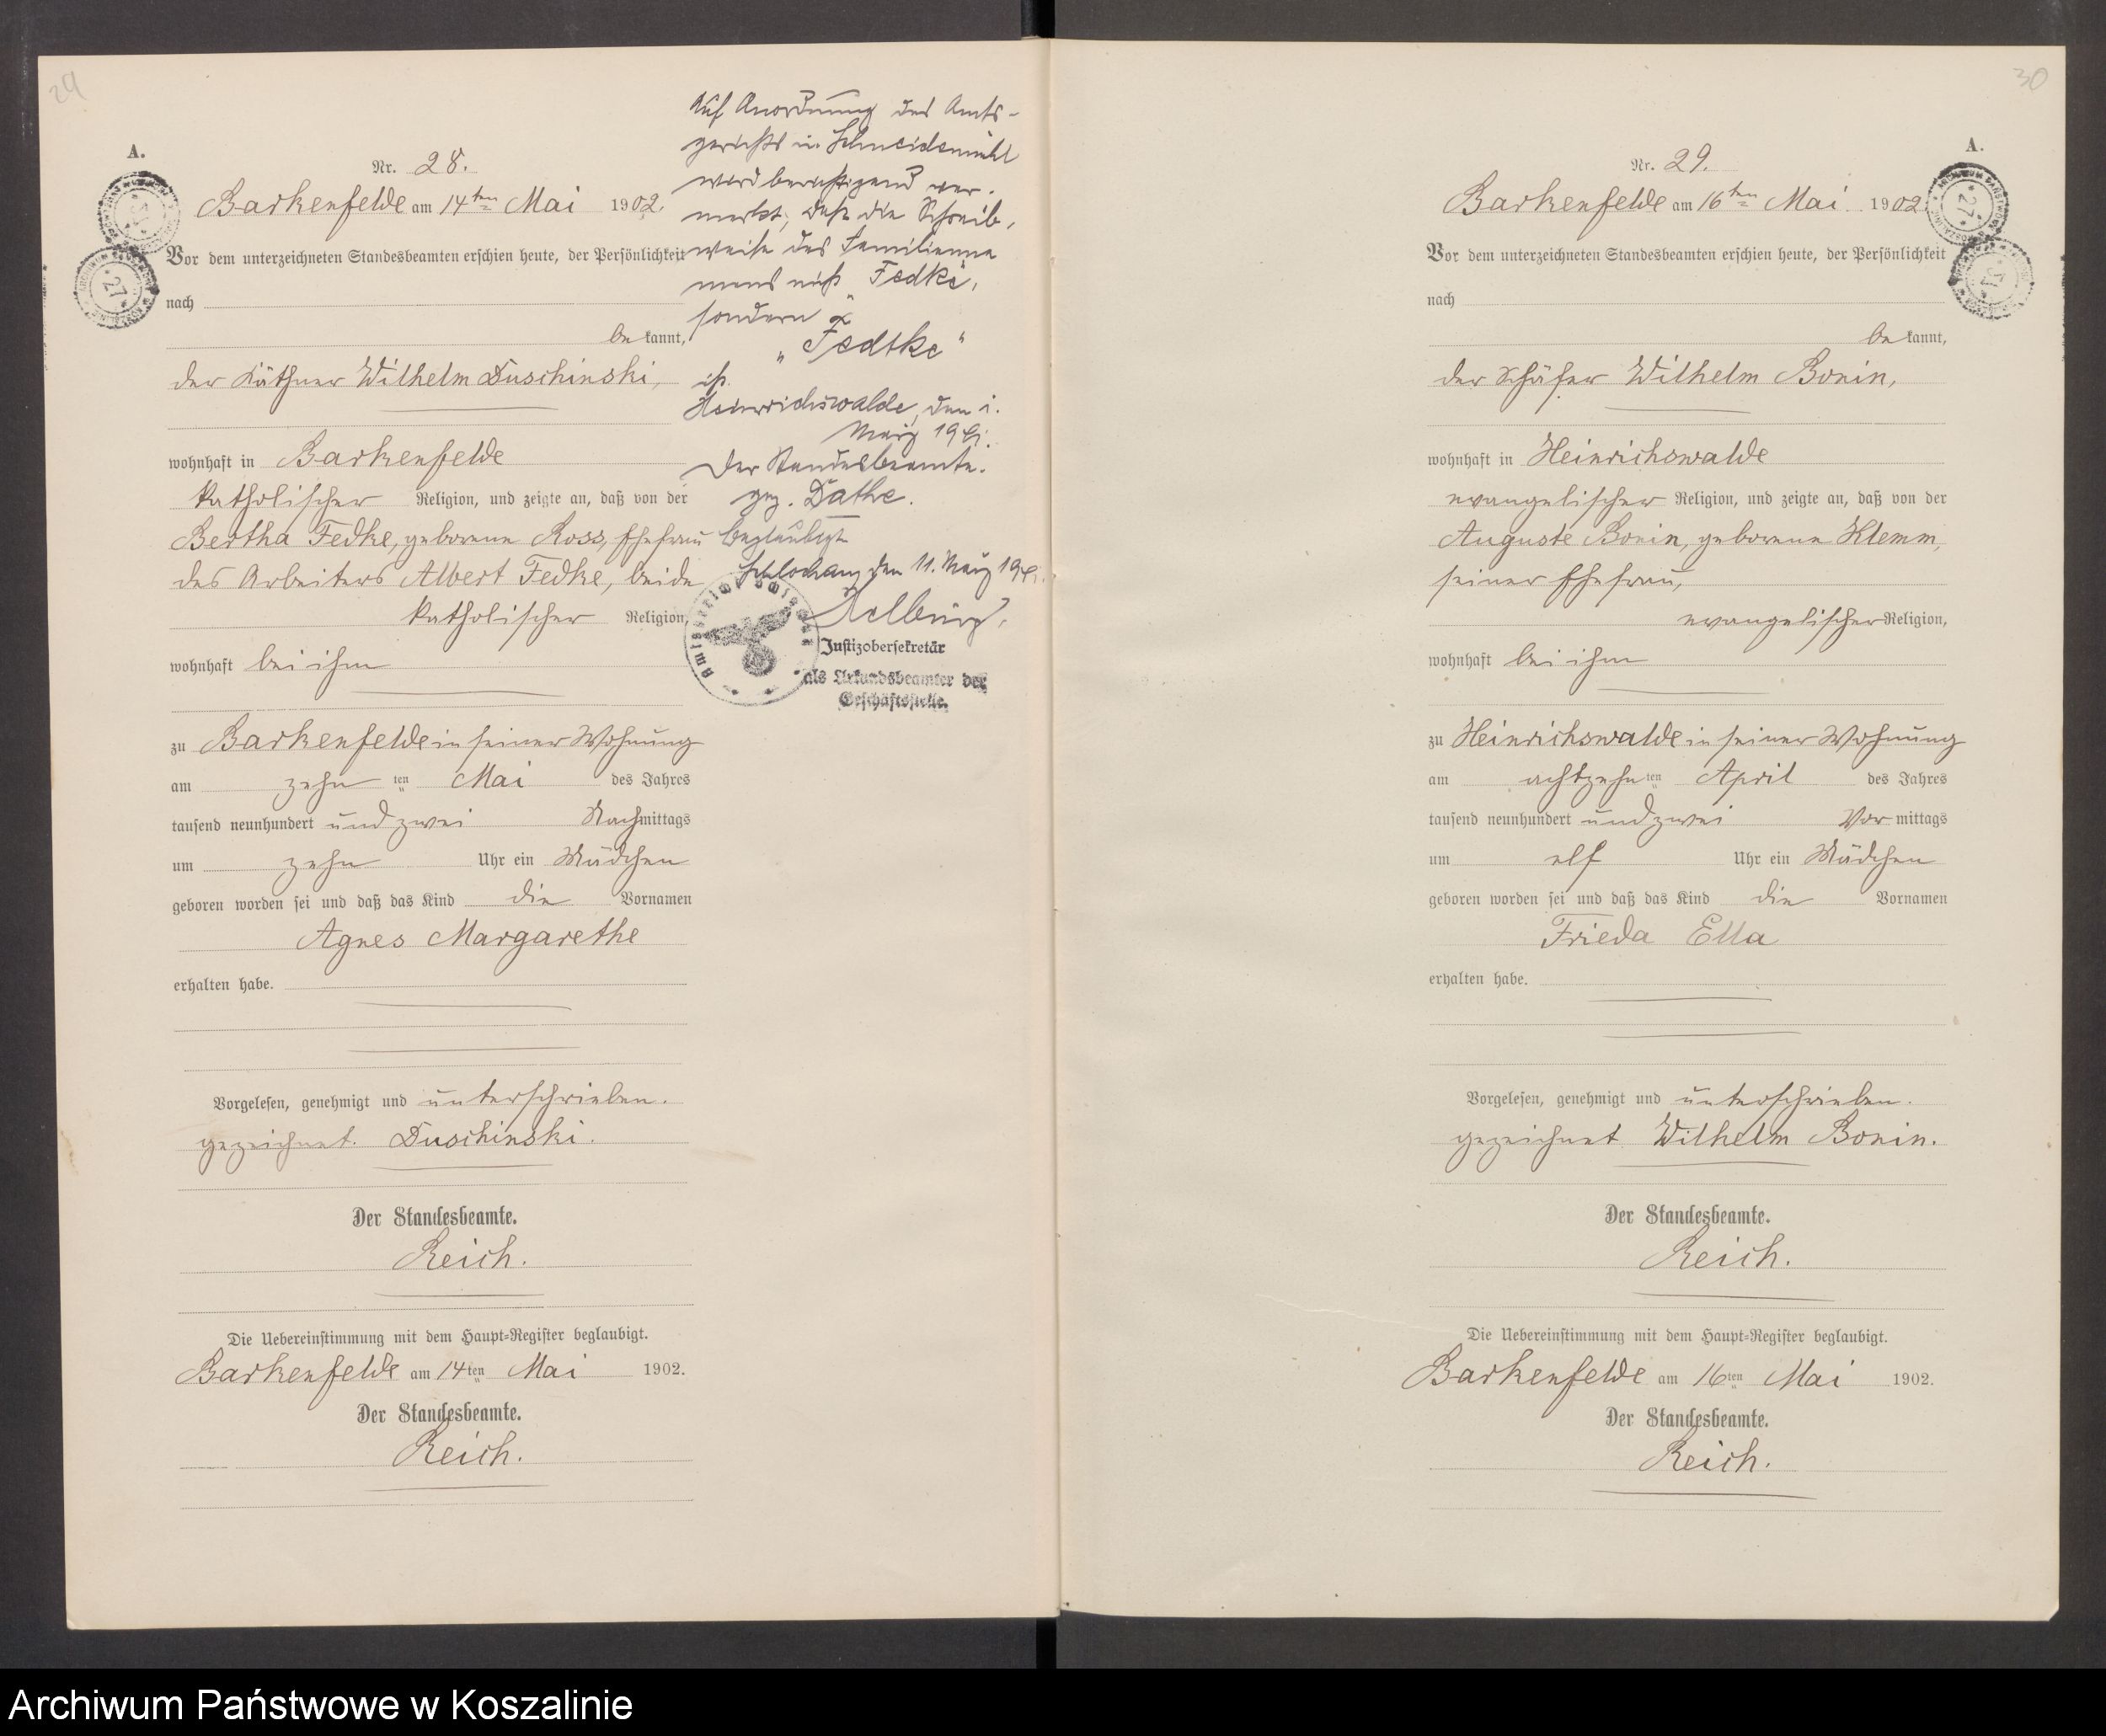 29
A.
Nr. 28.
Barkenfelde am 14ten Mai 1902.
Vor dem unterzeichneten Standesbeamten erschien heute, der Persönlichkeit
nach
bekannt,
der Käthner Wilhelm Duschinski,
wohnhaft in Barkenfelde
katholischer Religion, und zeigte an, daß von der
Bertha Fedke, geborene Ross, Ehefrau
des Arbeiters Albert Fedke, beide
katholischer Religion,
wohnhaft bei ihm
zu Barkenfelde in seiner Wohnung
am zehnten Mai des Jahres
tausend neunhundert und zwei Nachmittags
um zehn Uhr ein Mädchen
geboren worden sei und daß das Kind die Vornamen
Agnes Margarethe
erhalten habe.
Vorgelesen, genehmigt und unterschrieben.
gezeichnet. Duschinski.
Der Standesbeamte.
Reich.
Die Uebereinstimmung mit dem Haupt-Register beglaubigt.
Barkenfelde am 14ten Mai 1902.
Der Standesbeamte.
Reich.
Auf Anordnung des Amts-
gerichts in Schneidemühl
wird berichtigend ver-
merkt, daß die Schreib-
weise des Familienna
mens nicht Fedke,
sondern
"Fedtke"
ist.
Heinrichswalde, den 1.
März 1941.
Der Standesbeamte.
gez. Dathe.
Beglaubigt
Schlochau, den 11. März 1941.
Justizobersekretär
als Urkundsbeamter der
Geschäftsstelle.
30
A.
Nr. 29.
Barkenfelde am 16ten Mai 1902.
Vor dem unterzeichneten Standesbeamten erschien heute, der Persönlichkeit
nach
bekannt,
der Schäfer Wilhelm Bonin,
wohnhaft in Heinrichswalde
evangelischer Religion, und zeigte an, daß von der
Auguste Bonin, geborene Klemm,
seiner Ehefrau,
evangelischer Religion,
wohnhaft bei ihm
zu Heinrichswalde in seiner Wohnung
am achtzehnten April des Jahres
tausend neunhundert und zwei Vormittags
um elf Uhr ein Mädchen
geboren worden sei und daß das Kind die Vornamen
Frieda Ella
erhalten habe.
Vorgelesen, genehmigt und unterschrieben.
gezeichnet Wilhelm Bonin.
Der Standesbeamte.
Reich.
Die Uebereinstimmung mit dem Haupt-Register beglaubigt.
Barkenfelde am 16ten Mai 1902.
Der Standesbeamte.
Reich.
Archiwum Państwowe w Koszalinie